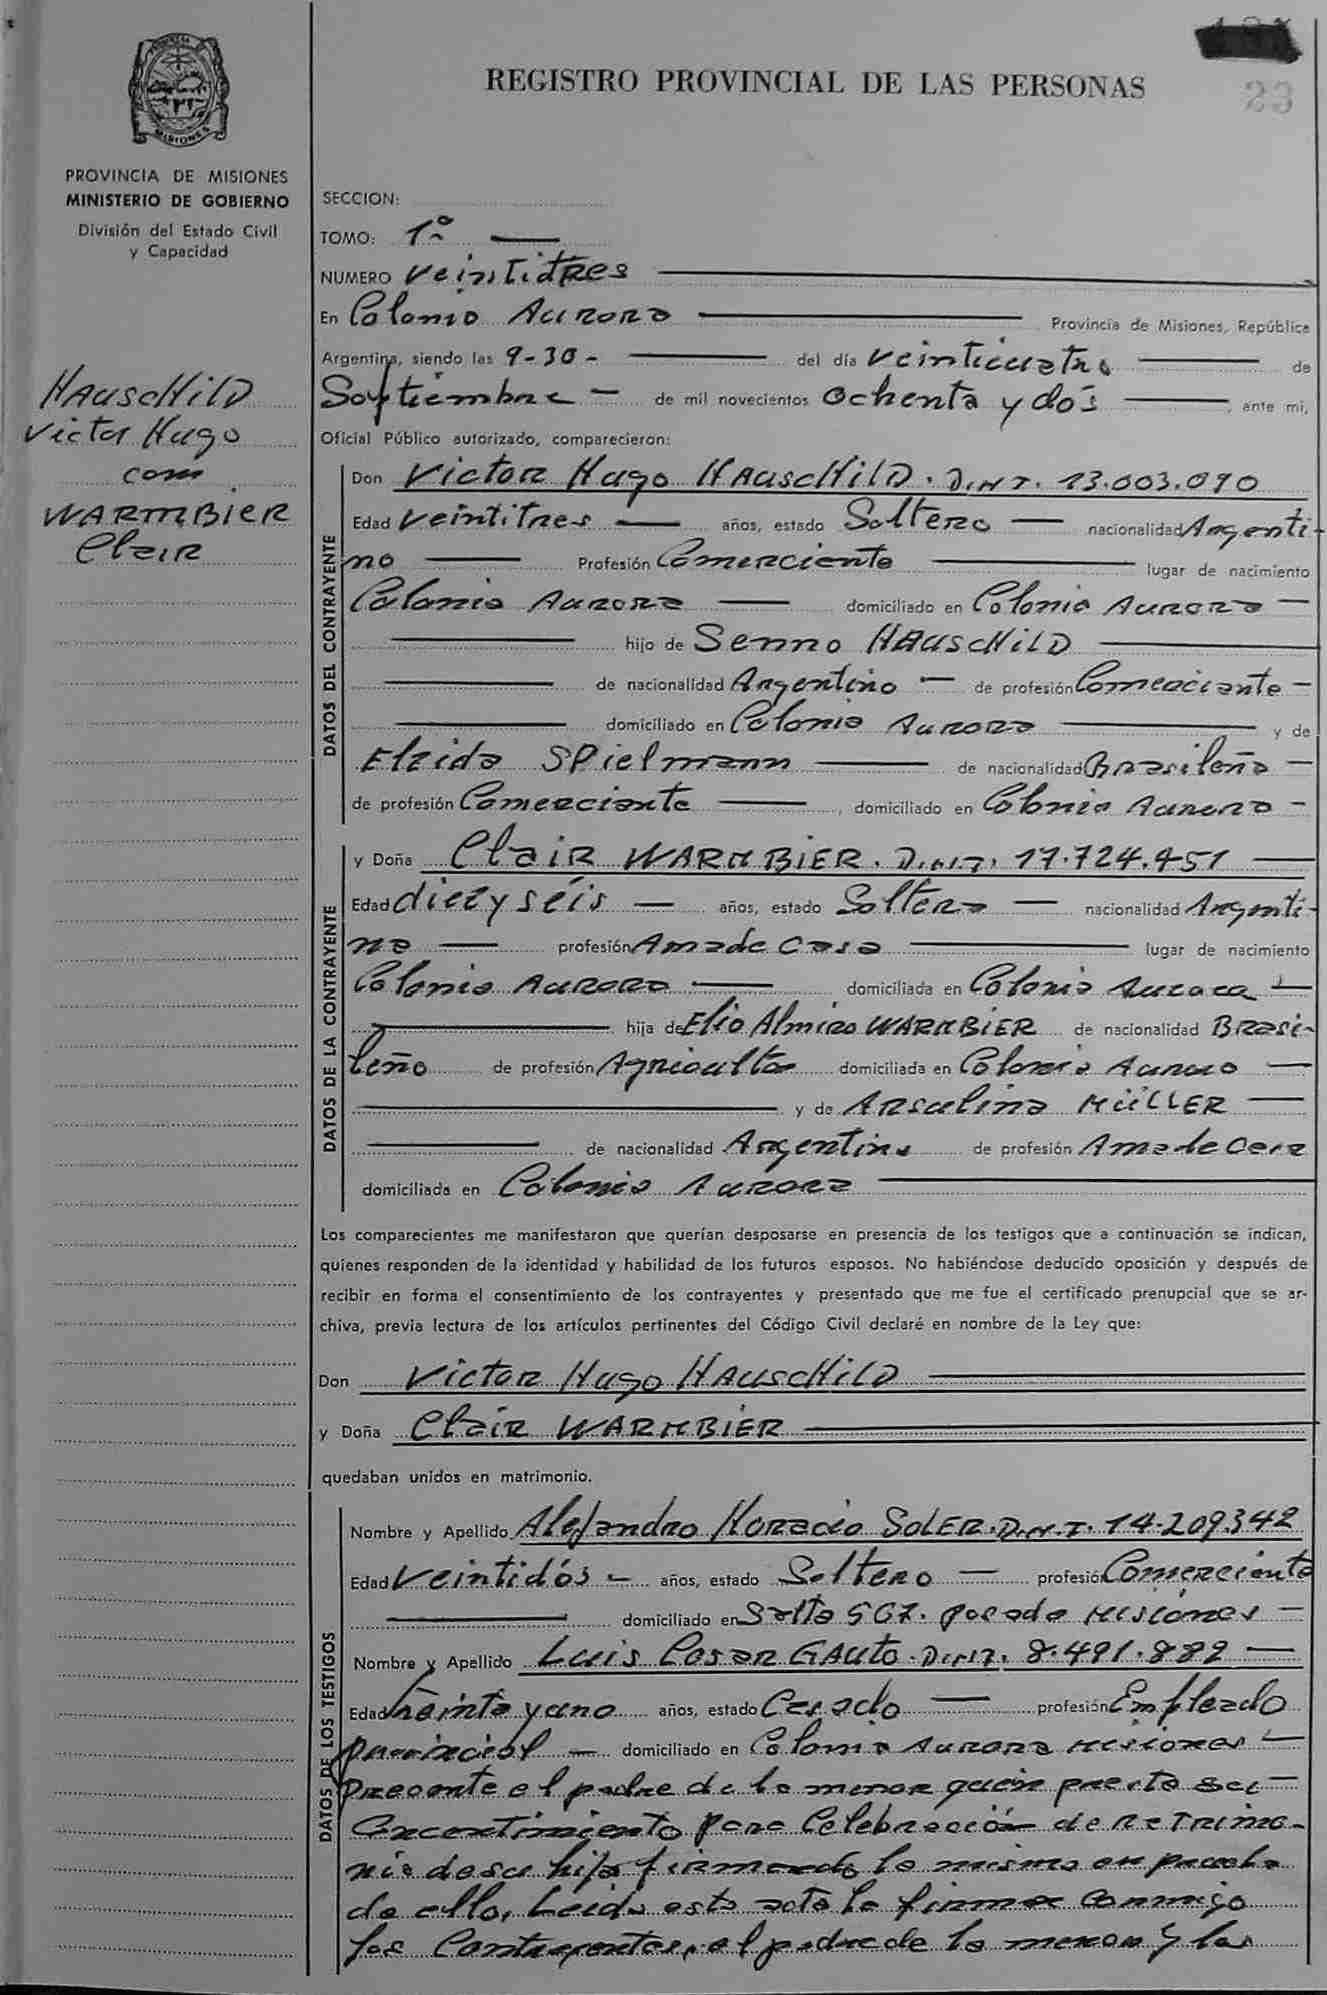 REGISTRO PROVINCIAL DE LAS PERSONAS
23
PROVINCIA DE MISIONES
MINISTERIO DE GOBIERNO
División del Estado Civil
y Capacidad
HAUSCHILD
Victor Hugo
con
WARMBIER
Clair
SECCION:
TOMO: 1º
NUMERO Veintitres
En Colonia Aurora Provincia de Misiones, República
Argentina, siendo las 9-30- del día Veinticuatro de
Septiembre de mil novecientos Ochenta y dós, ante mi,
Oficial Público autorizado, comparecieron:
DATOS DEL CONTRAYENTE
Don Victor Hugo HAUSCHILD. D.N.I. 13.003.090
Edad Veintitres años, estado Soltero nacionalidad Argenti-
no Profesión Comerciante lugar de nacimiento
Colonia Aurora domiciliado en Colonia Aurora
hijo de Senno HAUSCHILD
de nacionalidad Argentino de profesión Comerciante
domiciliado en Colonia Aurora y de
Elzida SPielmann de nacionalidad Brasileña
de profesión Comerciante, domiciliado en Colonia Aurora
DATOS DE LA CONTRAYENTE
y Doña Clair WARMBIER. D.N.I. 17.724.451
Edad diez y séis años, estado Soltera nacionalidad Argenti-
na profesión Ama de Casa lugar de nacimiento
Colonia Aurora domiciliada en Colonia Aurora
hija de Elio Almiro WARMBIER de nacionalidad Brasi-
leño de profesión Agricultor domiciliada en Colonia Aurora
y de Arsulina MÜLLER
de nacionalidad Argentina de profesión Ama de Casa
domiciliada en Colonia Aurora
Los comparecientes me manifestaron que querían desposarse en presencia de los testigos que a continuación se indican,
quienes responden de la identidad y habilidad de los futuros esposos. No habiéndose deducido oposición y después de
recibir en forma el consentimiento de los contrayentes y presentado que me fue el certificado prenupcial que se ar-
chiva, previa lectura de los artículos pertinentes del Código Civil declaré en nombre de la Ley que:
Don Victor Hugo HAUSCHILD
y Doña Clair WARMBIER
quedaban unidos en matrimonio.
DATOS DE LOS TESTIGOS
Nombre y Apellido Alejandro Horacio SOLER. D.N.I. 14.209.342
Edad Veintidós años, estado Soltero profesión Comerciante
domiciliado en Salta 567. Posada Misiones
Nombre y Apellido Luis Cesar GAUTO. D.N.I. 8.491.889
Edad treinta y uno años, estado Casado profesión Empleado
provincial domiciliado en Colonia Aurora Misiones
Presente el padre de la menor quien presta su
Concentimiento para Celebración de Matrimo-
nio de su hija firmando la misma en prueba
de ello, Leida esta acta la firman conmigo
los Contrayentes, el padre de la menor y los